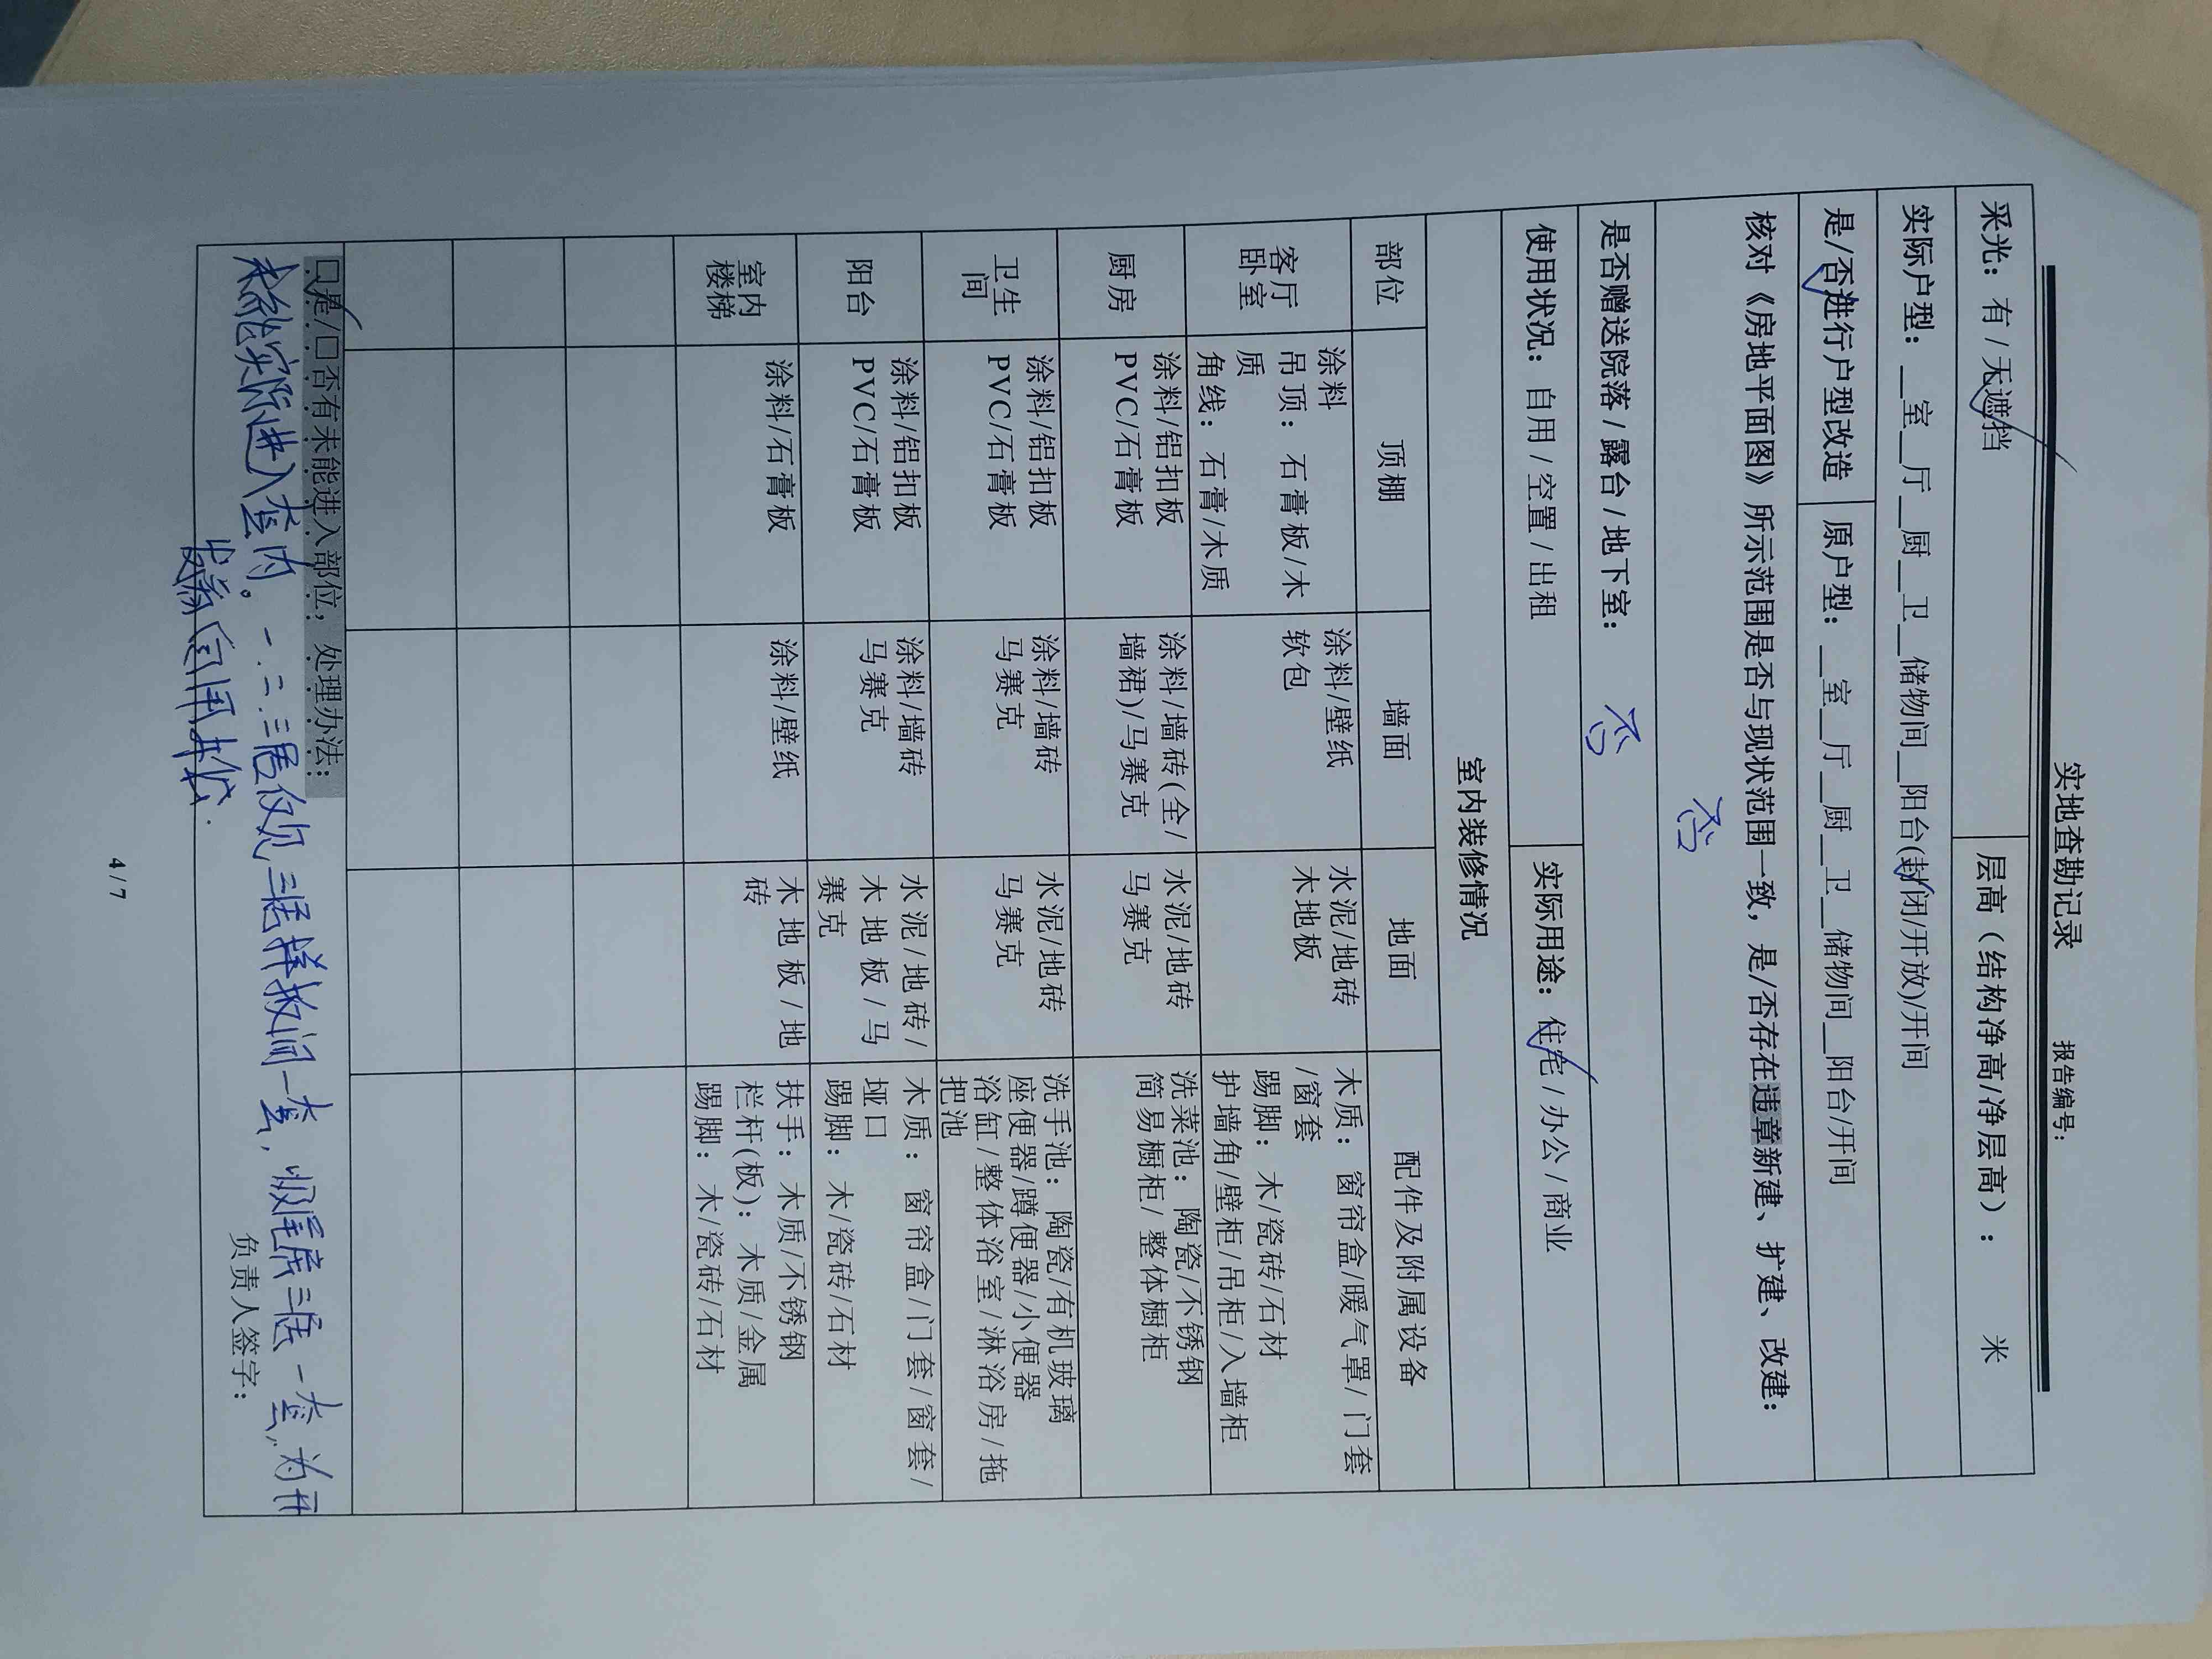 实地查勘记录
报告编号：
采光：有/无遮挡 层高（结构净高/净层高）： 米
实际户型：__室__厅__厨__卫__储物间__阳台(封闭/开放)/开间
是/否进行户型改造 原户型：__室__厅__厨__卫__储物间__阳台/开间
核对《房地平面图》所示范围是否与现状范围一致，是/否存在违章新建、扩建、改建：
否
是否赠送院落/露台/地下室： 否
使用状况：自用/空置/出租 实际用途：住宅/办公/商业
室内装修情况
部位 顶棚 墙面 地面 配件及附属设备
客厅
卧室
涂料
吊顶：石膏板/木
质
角线：石膏/木质
涂料/壁纸
软包
水泥/地砖
木地板
木质：窗帘盒/暖气罩/门套
/窗套
踢脚：木/瓷砖/石材
护墙角/壁柜/吊柜/入墙柜
厨房
涂料/铝扣板
PVC/石膏板
涂料/墙砖(全/
墙裙)/马赛克
水泥/地砖
马赛克
洗菜池：陶瓷/不锈钢
简易橱柜/整体橱柜
卫生
间
涂料/铝扣板
PVC/石膏板
涂料/墙砖
马赛克
水泥/地砖
马赛克
洗手池：陶瓷/有机玻璃
座便器/蹲便器/小便器
浴缸/整体浴室/淋浴房/拖
把池
阳台
涂料/铝扣板
PVC/石膏板
涂料/墙砖
马赛克
水泥/地砖/
木地板/马
赛克
木质：窗帘盒/门套/窗套/
垭口
踢脚：木/瓷砖/石材
室内
楼梯
涂料/石膏板
涂料/壁纸
木地板/地
砖
扶手：木质/不锈钢
栏杆(板)：木质/金属
踢脚：木/瓷砖/石材
□是/□否有未能进入部位，处理办法：
未能实际进入套内。一.二.三居仅见三居样板间一套，三居一套，为开
发商自用办公.
负责人签字：
4/7